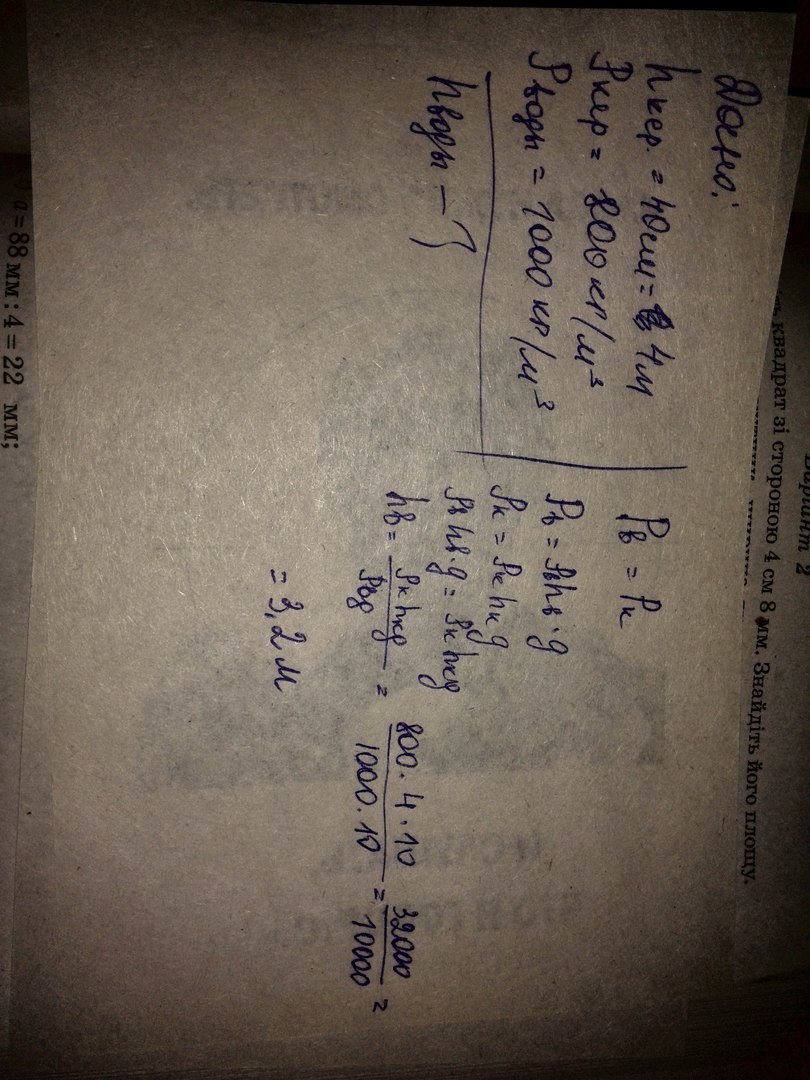 Дано:
hкер. = 40см = 4м
Ркер = 800 кг/м³
Рводы = 1000 кг/м³
hводы – ?
Рв = Рк
Рв = ρвhв·g
Рк = ρкhкg
ρвhв·g = ρкhкg
hв = ρкhкg / ρвg = 800·4·10 / 1000·10 = 32000 / 10000 =
= 3,2 м
Варіант 2
квадрат зі стороною 4 см 8 мм. Знайдіть його площу.
1) a = 88 мм : 4 = 22 мм;